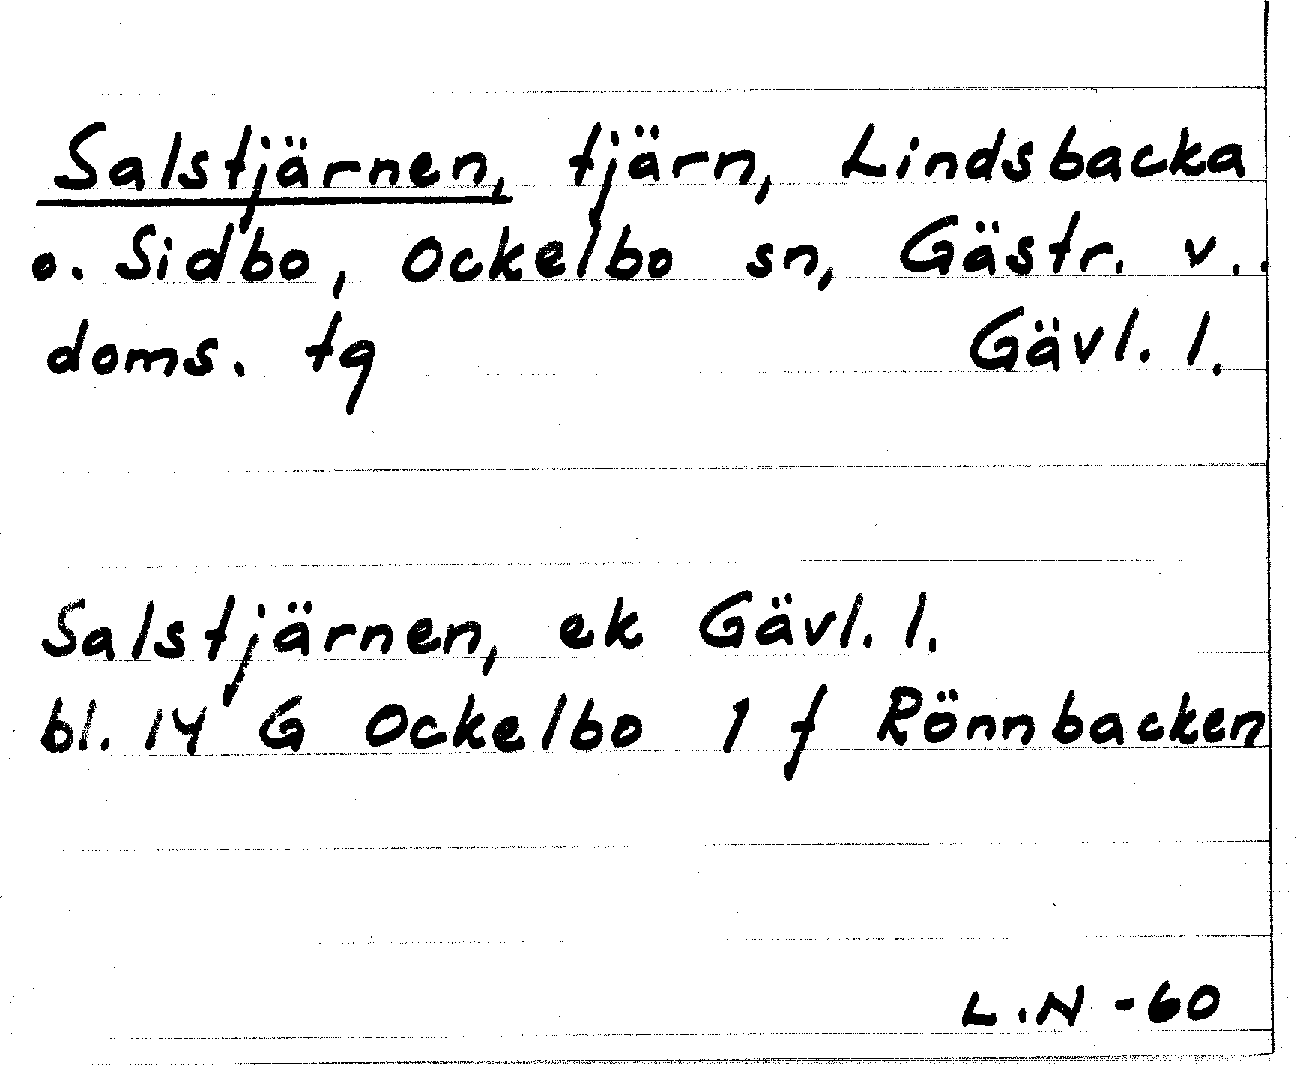 Salstjärnen, tjärn, Lindsbacka
o. Sidbo, Ockelbo sn, Gästr. v.
doms. tg Gävl. l.
Salstjärnen, ek Gävl. l.
bl. 14 G Ockelbo 1 f Rönnbacken
L.N -60